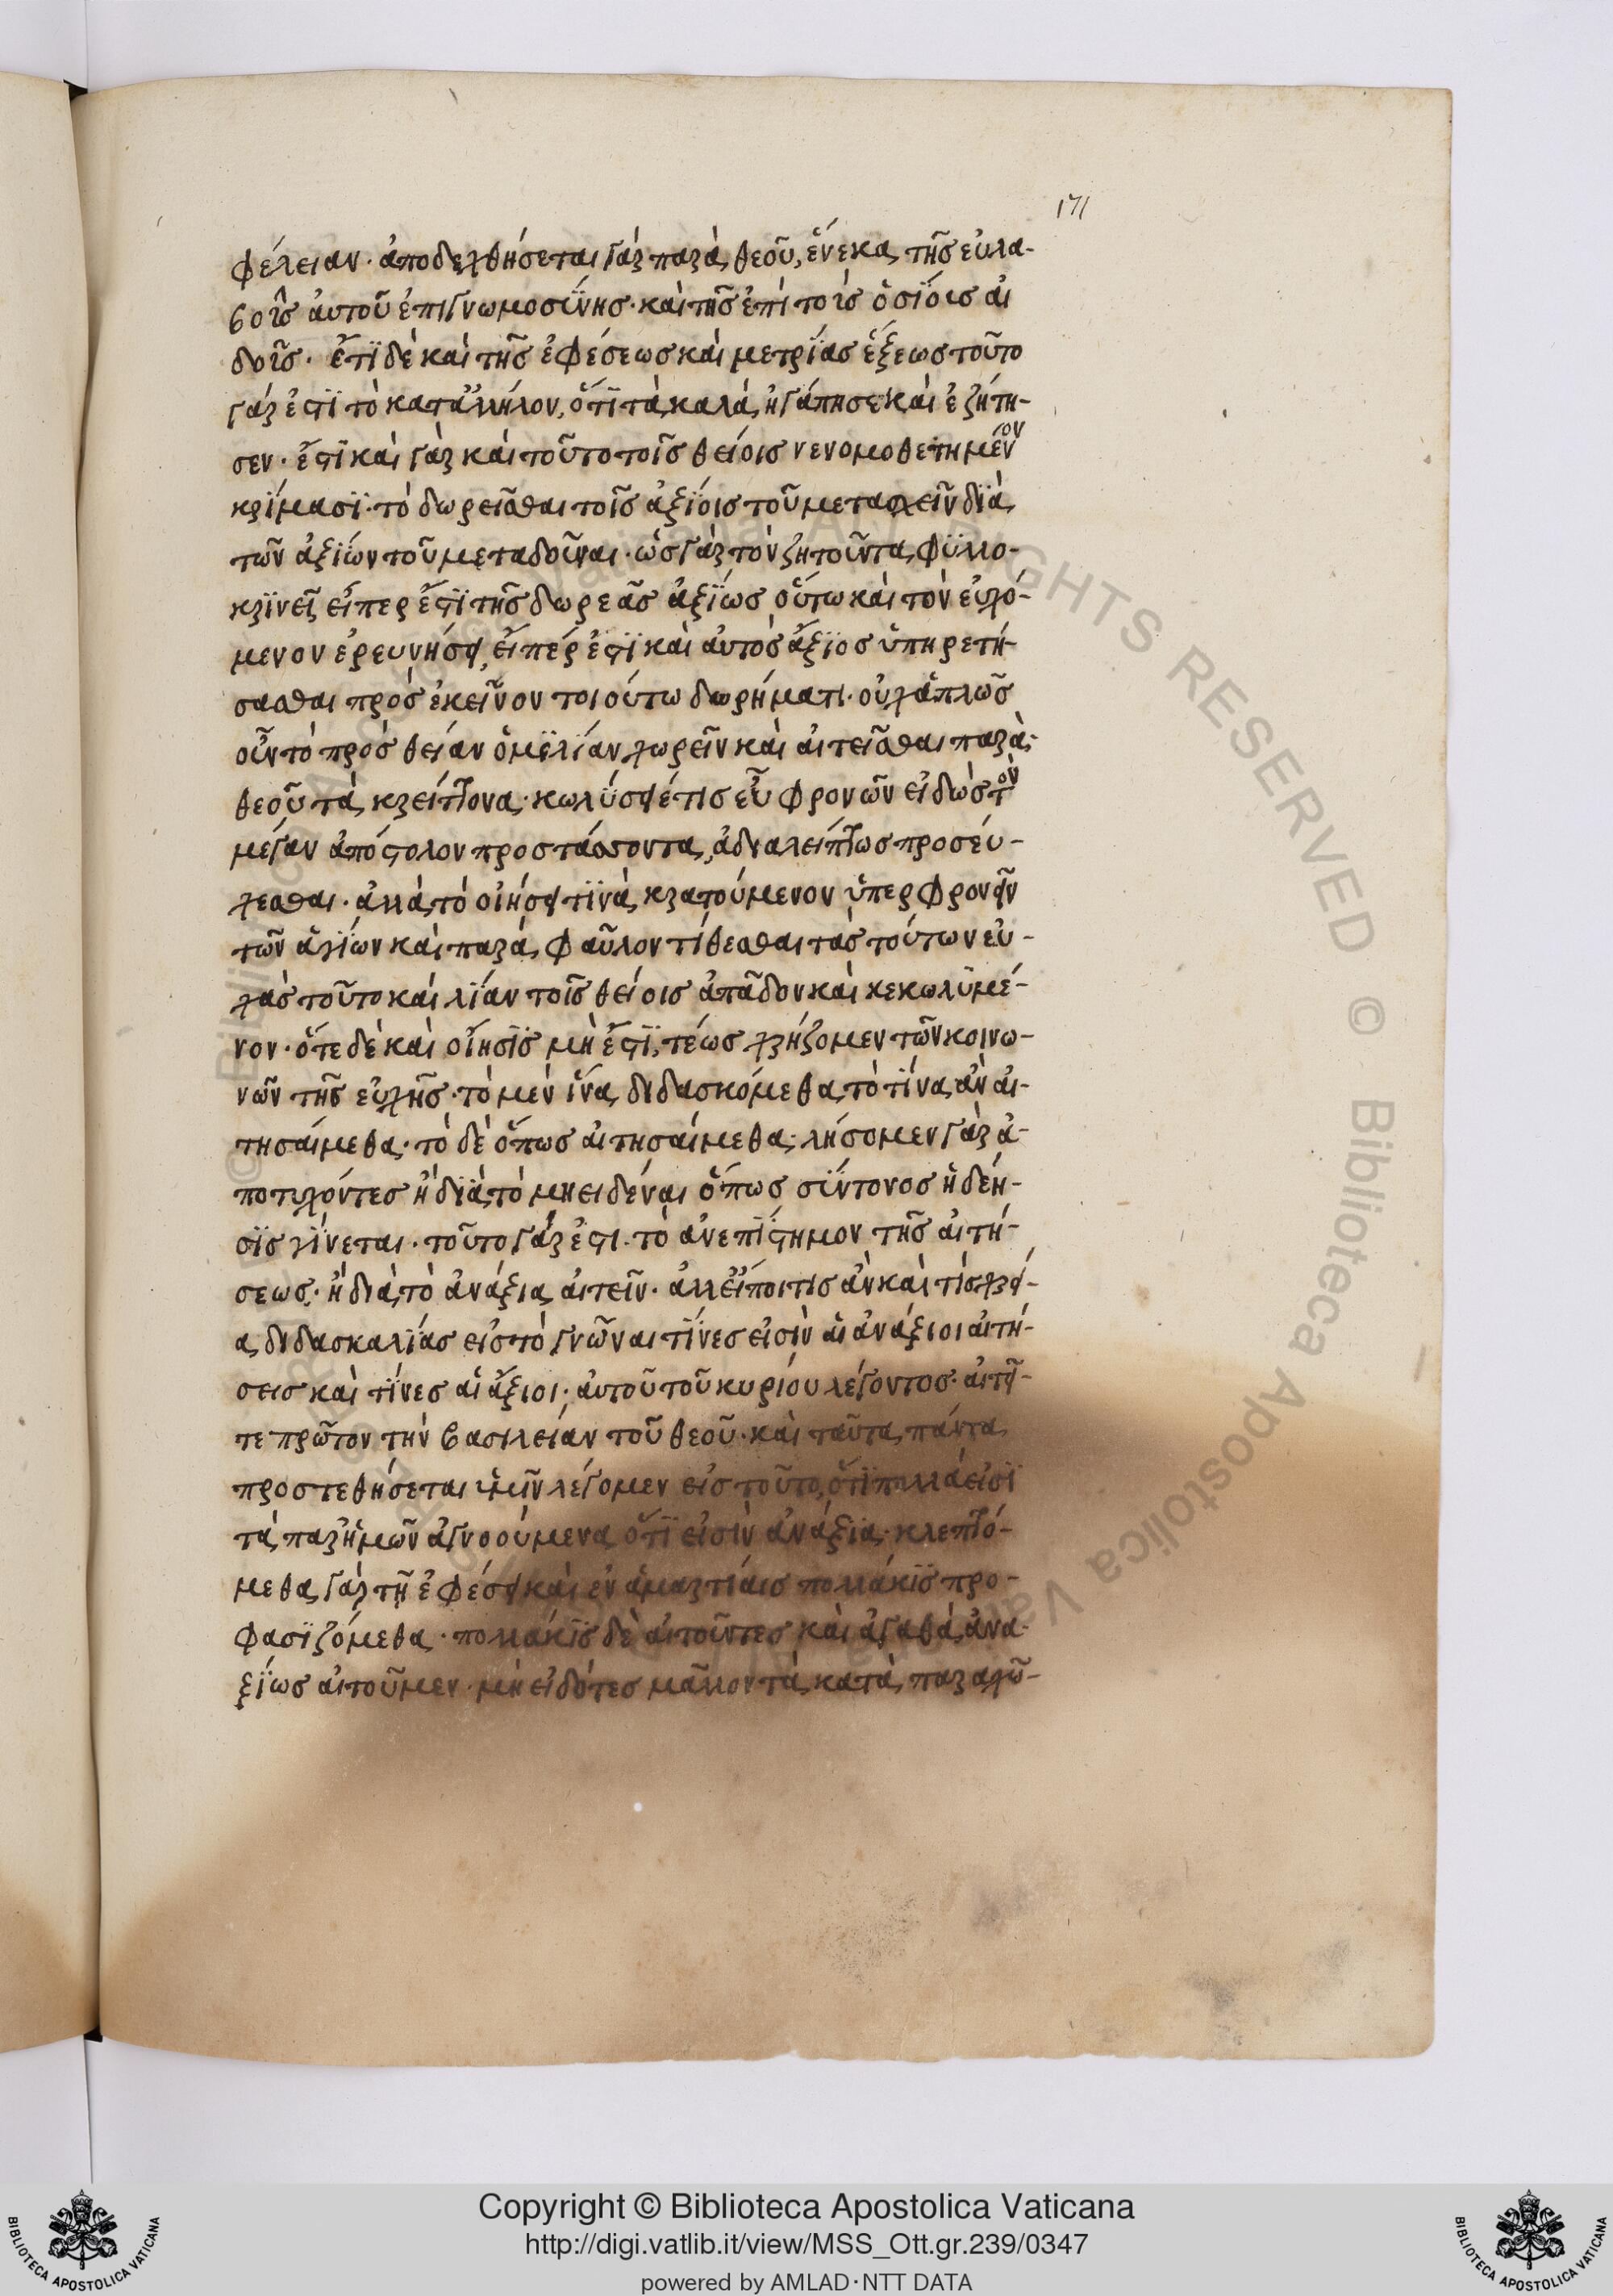 171
φέλειαν· ἀποδεχθήσεται γὰρ παρὰ θεοῦ, ἕνεκα τῆς εὐλα-
βοῖς ἀυτοῦ ἐπιγνωμοσύνης· καὶ τῆς ἐπὶ τοῖς ὁσΐοις αἰ
δοῖς· ἔτϊ δὲ καὶ τῆς ἐφέσεως καὶ μετρΐας ἕξεως τοῦτο
γάρ ἐστϊ τὸ κατάλληλον, ὅτϊ τὰ καλὰ ἠγάπησε καὶ ἐζήτη-
σεν· ἔστϊ καὶ γὰρ καὶ τοῦτο τοῖς θείοις νενομοθετημένον
κρΐμασϊ· τὸ δωρεῖσθαι τοῖς ἀξΐοις τοῦ μετασχεῖν δϊὰ
τῶν ἀξΐων τοῦ μεταδοῦναι· ὡς γὰρ τὸν ζητοῦντα φϋλλο-
κρϊνεῖ, εἴπερ ἔστϊ τῆς δωρεᾶς ἀξΐως οὕτω καὶ τὸν εὐχό-
μενον ἐρευνήσει, εἰπέρ ἐστϊ καὶ αὐτὸς ἄξϊος ὑπηρετή-
σασθαι πρὸς ἐκεῖνον τοιούτω δωρήματι· οὐχ ἁπλῶς
οὖν τὸ πρὸς θείαν ὁμϊλΐαν χωρεῖν καὶ αἰτεῖσθαι παρὰ
θεοῦ τὰ κρείττονα· κωλύσειέ τις εὖ φρονῶν εἰδὼς τὸν
μέγαν ἀπόστολον προστάσσοντα, ἀδιαλείπτως προσέυ-
χεσθαι· ἀλλὰ τὸ οἰήσει τϊνὰ κρατούμενον ὑπερφρονεῖν
τῶν ἁγΐων καὶ παρὰ φαῦλον τίθεσθαι τὰς τούτων εὐ-
χὰς τοῦτο καὶ λΐαν τοῖς θείοις ἀπᾶδον καὶ κεκωλϋμέ-
νον· ὅτε δὲ καὶ οἴησϊς μὴ ἔστϊ, τέως χρήζομεν τῶν κοινω-
νῶν τῆς εὐχῆς· τὸ μὲν ἵνα διδασκόμεθα, τὸ τΐνα ἂν αἰ-
τησαίμεθα· τὸ δὲ ὅπως αἰτησαίμεθα· λήσομεν γὰρ ἀ-
ποτυχόντες ἢ δϊὰ τὸ μὴ ειδέναι ὅπως σύντονος ἡ δέη-
σϊς γΐνεται· τοῦτο γάρ ἐστι· τὸ ἀνεπΐστημον τῆς αἰτή-
σεως· ἢ διὰ τὸ ἀνάξια αἰτεῖν· ἀλλ' εἴποι τις ἂν καὶ τίς χρεί-
α διδασκαλΐας εἰς τὸ γνῶναι τΐνες εἰσὶν αἱ ἀνάξιοι αἰτή-
σεις καὶ τΐνες αἱ ἄξιοι· ἀυτοῦ τοῦ κυρίου λέγοντος· αἰτεῖ-
τε πρῶτον τὴν βασιλείαν τοῦ θεοῦ· καὶ ταῦτα πάντα
προστεθήσεται ὑμῖν λέγομεν εἰς τοῦτο, ὅτϊ πολλά εἰσϊ
τὰ παρ' ἡμῶν ἀγνοούμενα ὅτϊ εἰσὶν ἀνάξϊα· κλεπτό-
μεθα γὰρ τῇ ἐφέσει καὶ ἐν ἁμαρτίαις πολλάκϊς προ-
φασϊζόμεθα· πολλάκϊς δὲ αἰτοῦντες καὶ ἀγαθὰ, ἀνα-
ξΐως αἰτοῦμεν· μὴ εἰδότες μᾶλλον τὰ κατὰ παραχώ-
Copyright © Biblioteca Apostolica Vaticana
http://digi.vatlib.it/view/MSS_Ott.gr.239/0347
powered by AMLAD·NTT DATA